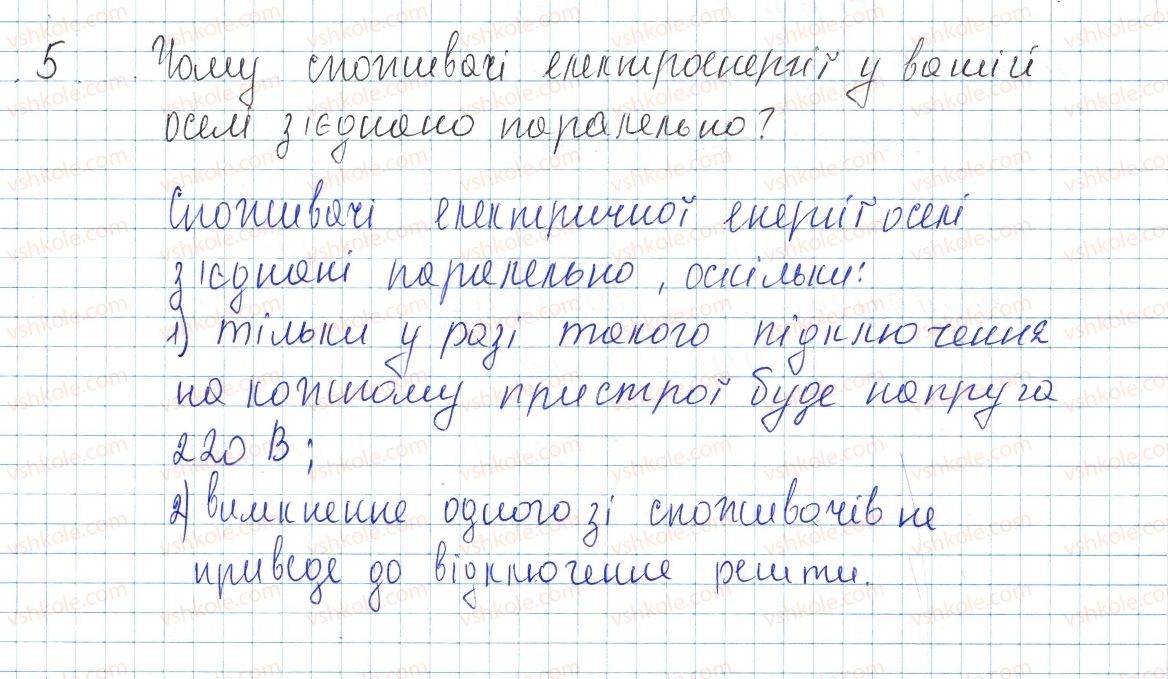 5 Чому споживачі електроенергії у вашій
оселі з'єднано паралельно?
Споживачі електричної енергії оселі
з'єднані паралельно, оскільки:
1) тільки у разі такого підключення
на кожному пристрої буде напруга
220 В;
2) вимкнення одного зі споживачів не
приведе до відключення решти.
vshkole.com